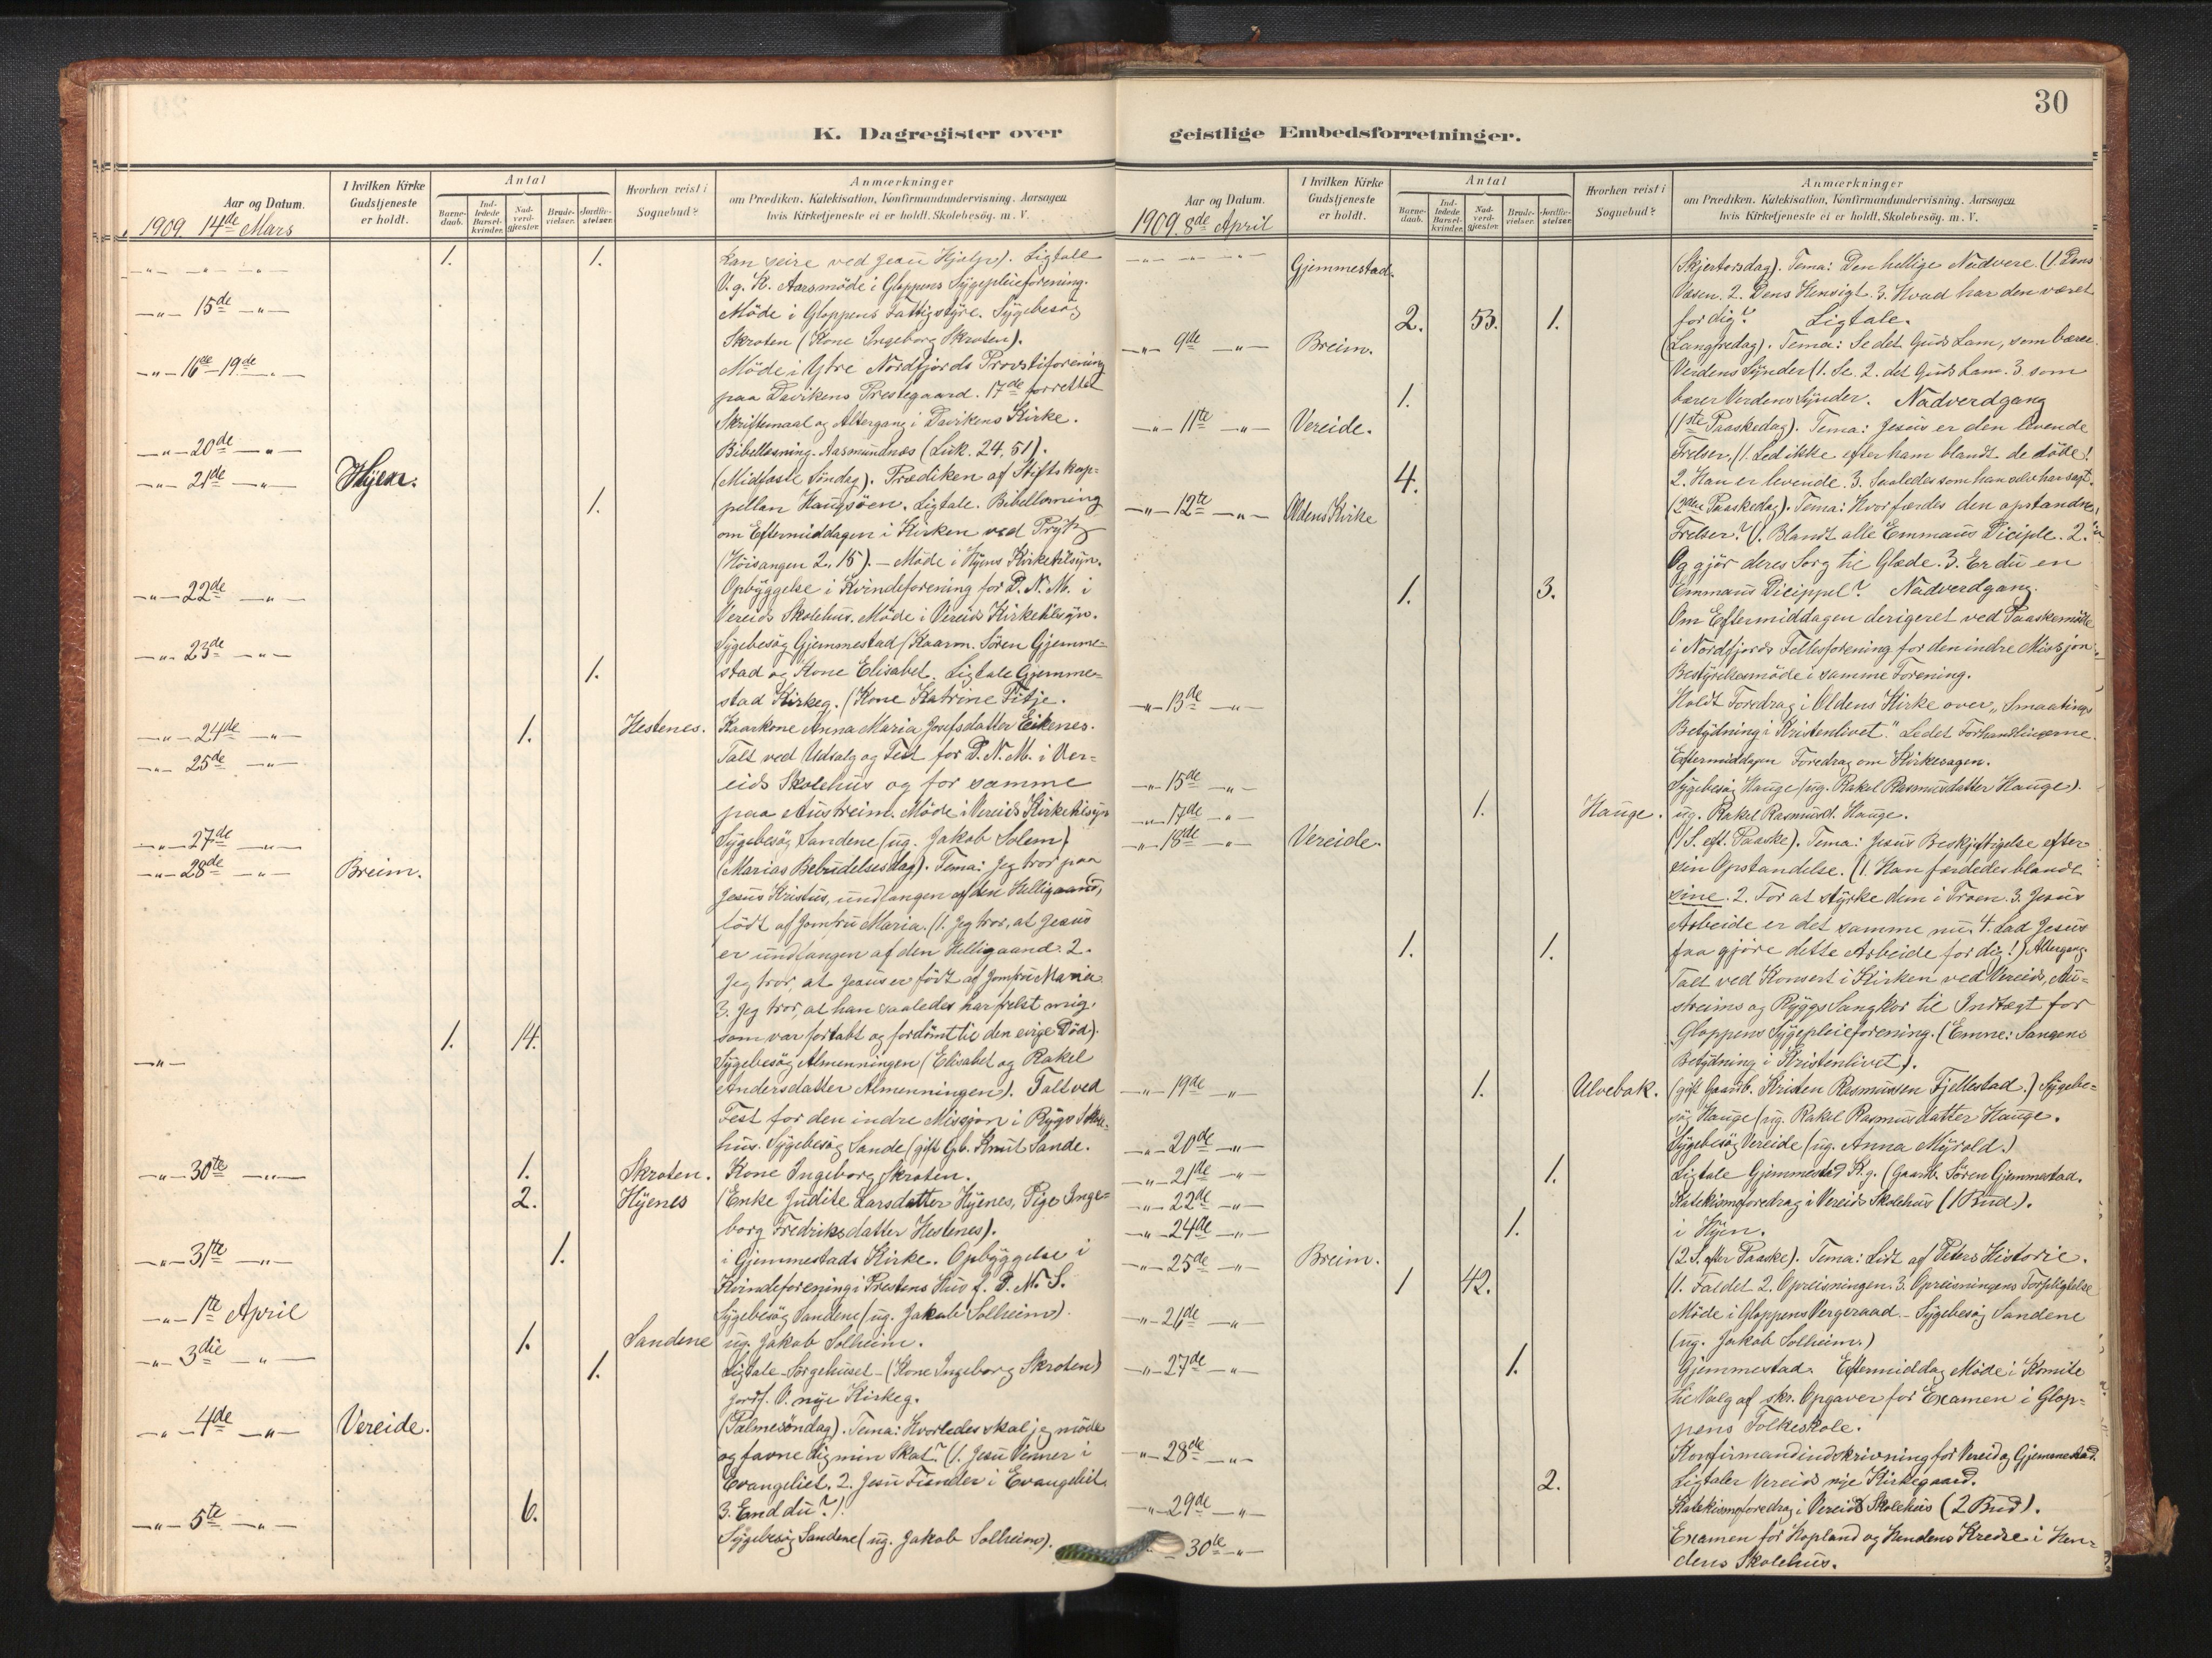 30
K. Dagregister over geistlige Embedsforretninger.
Aar og Datum.
I hvilken Kirke Gudstjeneste er holdt.
Antal
Barnedaab.
Indledede Barselkvinder.
Nadverdgjæster.
Brudevielser.
Jordfæstelser.
Hvorhen reist i Sognebud?
Anmærkninger
om Prædiken. Katekisation, Konfirmandundervisning. Aarsagen
hvis Kirketjeneste ei er holdt. Skolebesøg. m. V.
1909. 14de Mars
1. 1. kan seire ved Jesu Hjelp). Ligtale
V. g. K. Aarsmöde i Gloppens Sygepleieforening.
15de Möde i Gloppens Fattigstyre. Sygebesøg
Skroten (Kone Ingeborg Skroten).
16de-19de Möde i Ytre Nordfjords Provstiforening
paa Davikens Prestegaard. 17de forrettet
Skriftemaal og Altergang i Davikens Kirke.
20de Bibellesning Aasmundnes (Luk. 24, 51).
21de Hyen. (Midfaste Söndag). Prædiken af Stiftskap-
1. pellan Haugsöen. Ligtale. Bibellesning
om Eftermiddagen i Kirken ved Prytz
(Höisangen 2, 15). – Möde i Hyens Kirketilsyn.
22de Opbyggelse i Kvindeforening for D. N. M. i
Vereids Skolehus. Möde i Vereids Kirketilsyn.
23de Sygebesøg Gjemmestad (Kaarm. Sören Gjemme-
1. stad og Kone Elisabet. Ligtale Gjemme-
stad Kirkeg. (Kone Katrine Fitje.
24de 1. Hestenes. Kaarkone Anna Maria Josefsdatter Eikenes.
25de Talt ved Udsalg og Fest for D. N. M. i Ver-
eids Skolehus og for samme
paa Austreim. Möde i Vereids Kirketilsyn
27de Sygebesøg Sandene (ug. Jakob Solem)
28de Breim. (Marias Bebudelsesdag). Tema: Jeg tror paa
Jesus Kristus, undfangen af den Helligaand,
födt af Jomfru Maria. (1. Jeg tror, at Jesus
er undfangen af den Helligaand. 2.
Jeg tror, at Jesus er födt af Jomfru Maria
3. Jeg tror, at han saaledes har frelst mig,
1. 14. som var fortabt og fordömt til den evige Död).
Sygebesøg Almenningen (Elisabet og Rakel
Andersdatter Almenningen). Talt ved
Fest for den indre Missjon i Rygs Skole-
hus. Sygebesøg Sande (gift Gb. Knut Sande.
30te 1. Skroten. Kone Ingeborg Skroten.
2. Hyenes (Enke Judite Larsdatter Hyenes, Pige Inge-
borg Fredriksdatter Hestenes).
31te 1. i Gjemmestads Kirke. Opbyggelse i
Kvindeforening i Prestens Hus f. D. N. S.
1te April Sygebesøg Sandene (ug. Jakob Solheim).
3die 1. Sandene ug. Jakob Solheim.
1. Ligtale – Sørgehuset – (Kone Ingeborg Skroten)
Jordf. V. nye Kirkeg.
4de Vereide. (Palmesöndag). Tema: Hvorledes skal jeg möde
og favne dig min Skat? (1. Jesu Venner i
Evangeliet. 2. Jesu Fiender i Evangeliet
6. 3. End du?).
5te Sygebesøg Sandene (ug. Jakob Solheim).
Aar og Datum.
I hvilken Kirke Gudstjeneste er holdt.
Antal
Barnedaab.
Indledede Barselkvinder.
Nadverdgjæster.
Brudevielser.
Jordfæstelser.
Hvorhen reist i Sognebud?
Anmærkninger
om Prædiken. Katekisation, Konfirmandundervisning. Aarsagen
hvis Kirketjeneste ei er holdt. Skolebesøg. m. V.
1909. 8de April
Gjemmestad. (Skjertorsdag). Tema: Den hellige Nadvere (1. Dens
Væsen. 2. Dens Hensigt. 3. Hvad har den været
2. 53. 1. for dig? Ligtale.
9de Breim. (Langfredag). Tema: Se det Guds Lam, som bærer
Verdens Synder (1. Se. 2. det Guds Lam. 3. som
1. bærer Verdens Synder. Nadverdgang
11te Vereide. (1ste Paaskedag). Tema: Jesus er den levende
Frelser. (1. Led ikke efter ham blandt de döde!
4. 2. Han er levende. 3. Saaledes som han selv har sagt.
12te Oldens Kirke (2den Paaskedag). Tema: Hvor færdes den opstandne
Frelser? (1. Blandt alle Emmaus Diciple. 2.
Og gjör deres Sorg til Glæde. 3. Er du en
1. 3. Emmaus Dicippel? Nadverdgang.
Om Eftermiddagen derigeret ved Paaskemöde
i Nordfjords Fellesforening for den indre Missjon.
Bestyrelsesmöde i samme Forening.
13de Holdt Foredrag i Oldens Kirke over „Smaatings
Betydning i Kristenlivet." Ledet Forhandlingerne.
Eftermiddagen Foredrag om Kirkesagen.
15de Sygebesøg Hauge (ug. Rakel Rasmusdatter Hauge).
17de 1. Hauge. ug. Rakel Rasmusd. Hauge.
18de Vereide. (1 S. eft. Paaske). Tema: Jesus Beskjeftigelse efter
sin Opstandelse. (1. Han færdedes blandt
sine. 2. For at styrke dem i Troen. 3. Jesus
Arbeide er det samme nu. 4. Lad Jesus
1. 1. faa gjöre dette Arbeide for dig!) Altergang.
Talt ved Konsert i Kirken ved Vereids, Au-
streims og Ryggs Sangkor til Indtægt for
Gloppens Sygepleieforening. (Emne: Sangens
Betydning i Kristenlivet).
19de 1. Ulvebak. (gift Gaardb. Kristen Rasmussen Fjellestad.) Sygebe-
søg Hauge (ug. Rakel Rasmusdatter Hauge.
20de Sygebesøg Vereide (ug. Anna Myrold.)
21de 1. Ligtale Gjemmestad K.g. (Gaardb. Sören Gjemmestad.
22de Katekismeforedrag i Vereids Skolehus (1 Bud).
24de 1. i Hyen.
25de Breim. (2 S. efter Paaske). Tema: Lidt af Peters Historie.
1 42. (1. Faldet 2. Opreisningen. 3. Opreisningens Forpligtelse
26de Möde i Gloppens Vergeraad – Sygebesøg Sandene
(ug. Jakob Solheim.)
27de 1. Gjemmestad. Eftermiddag Möde i Komite
til Valg af skr. Opgaver for Examen i Glop-
pens Folkeskole.
28de Konfirmandindskrivning for Vereid og Gjemmestad.
2. Ligtaler Vereids nye Kirkegaard.
29de Katekismeforedrag i Vereids Skolehus (2 Bud).
30te Examen for Hopland og Hendens Kredse i Hen-
dens Skolehus.